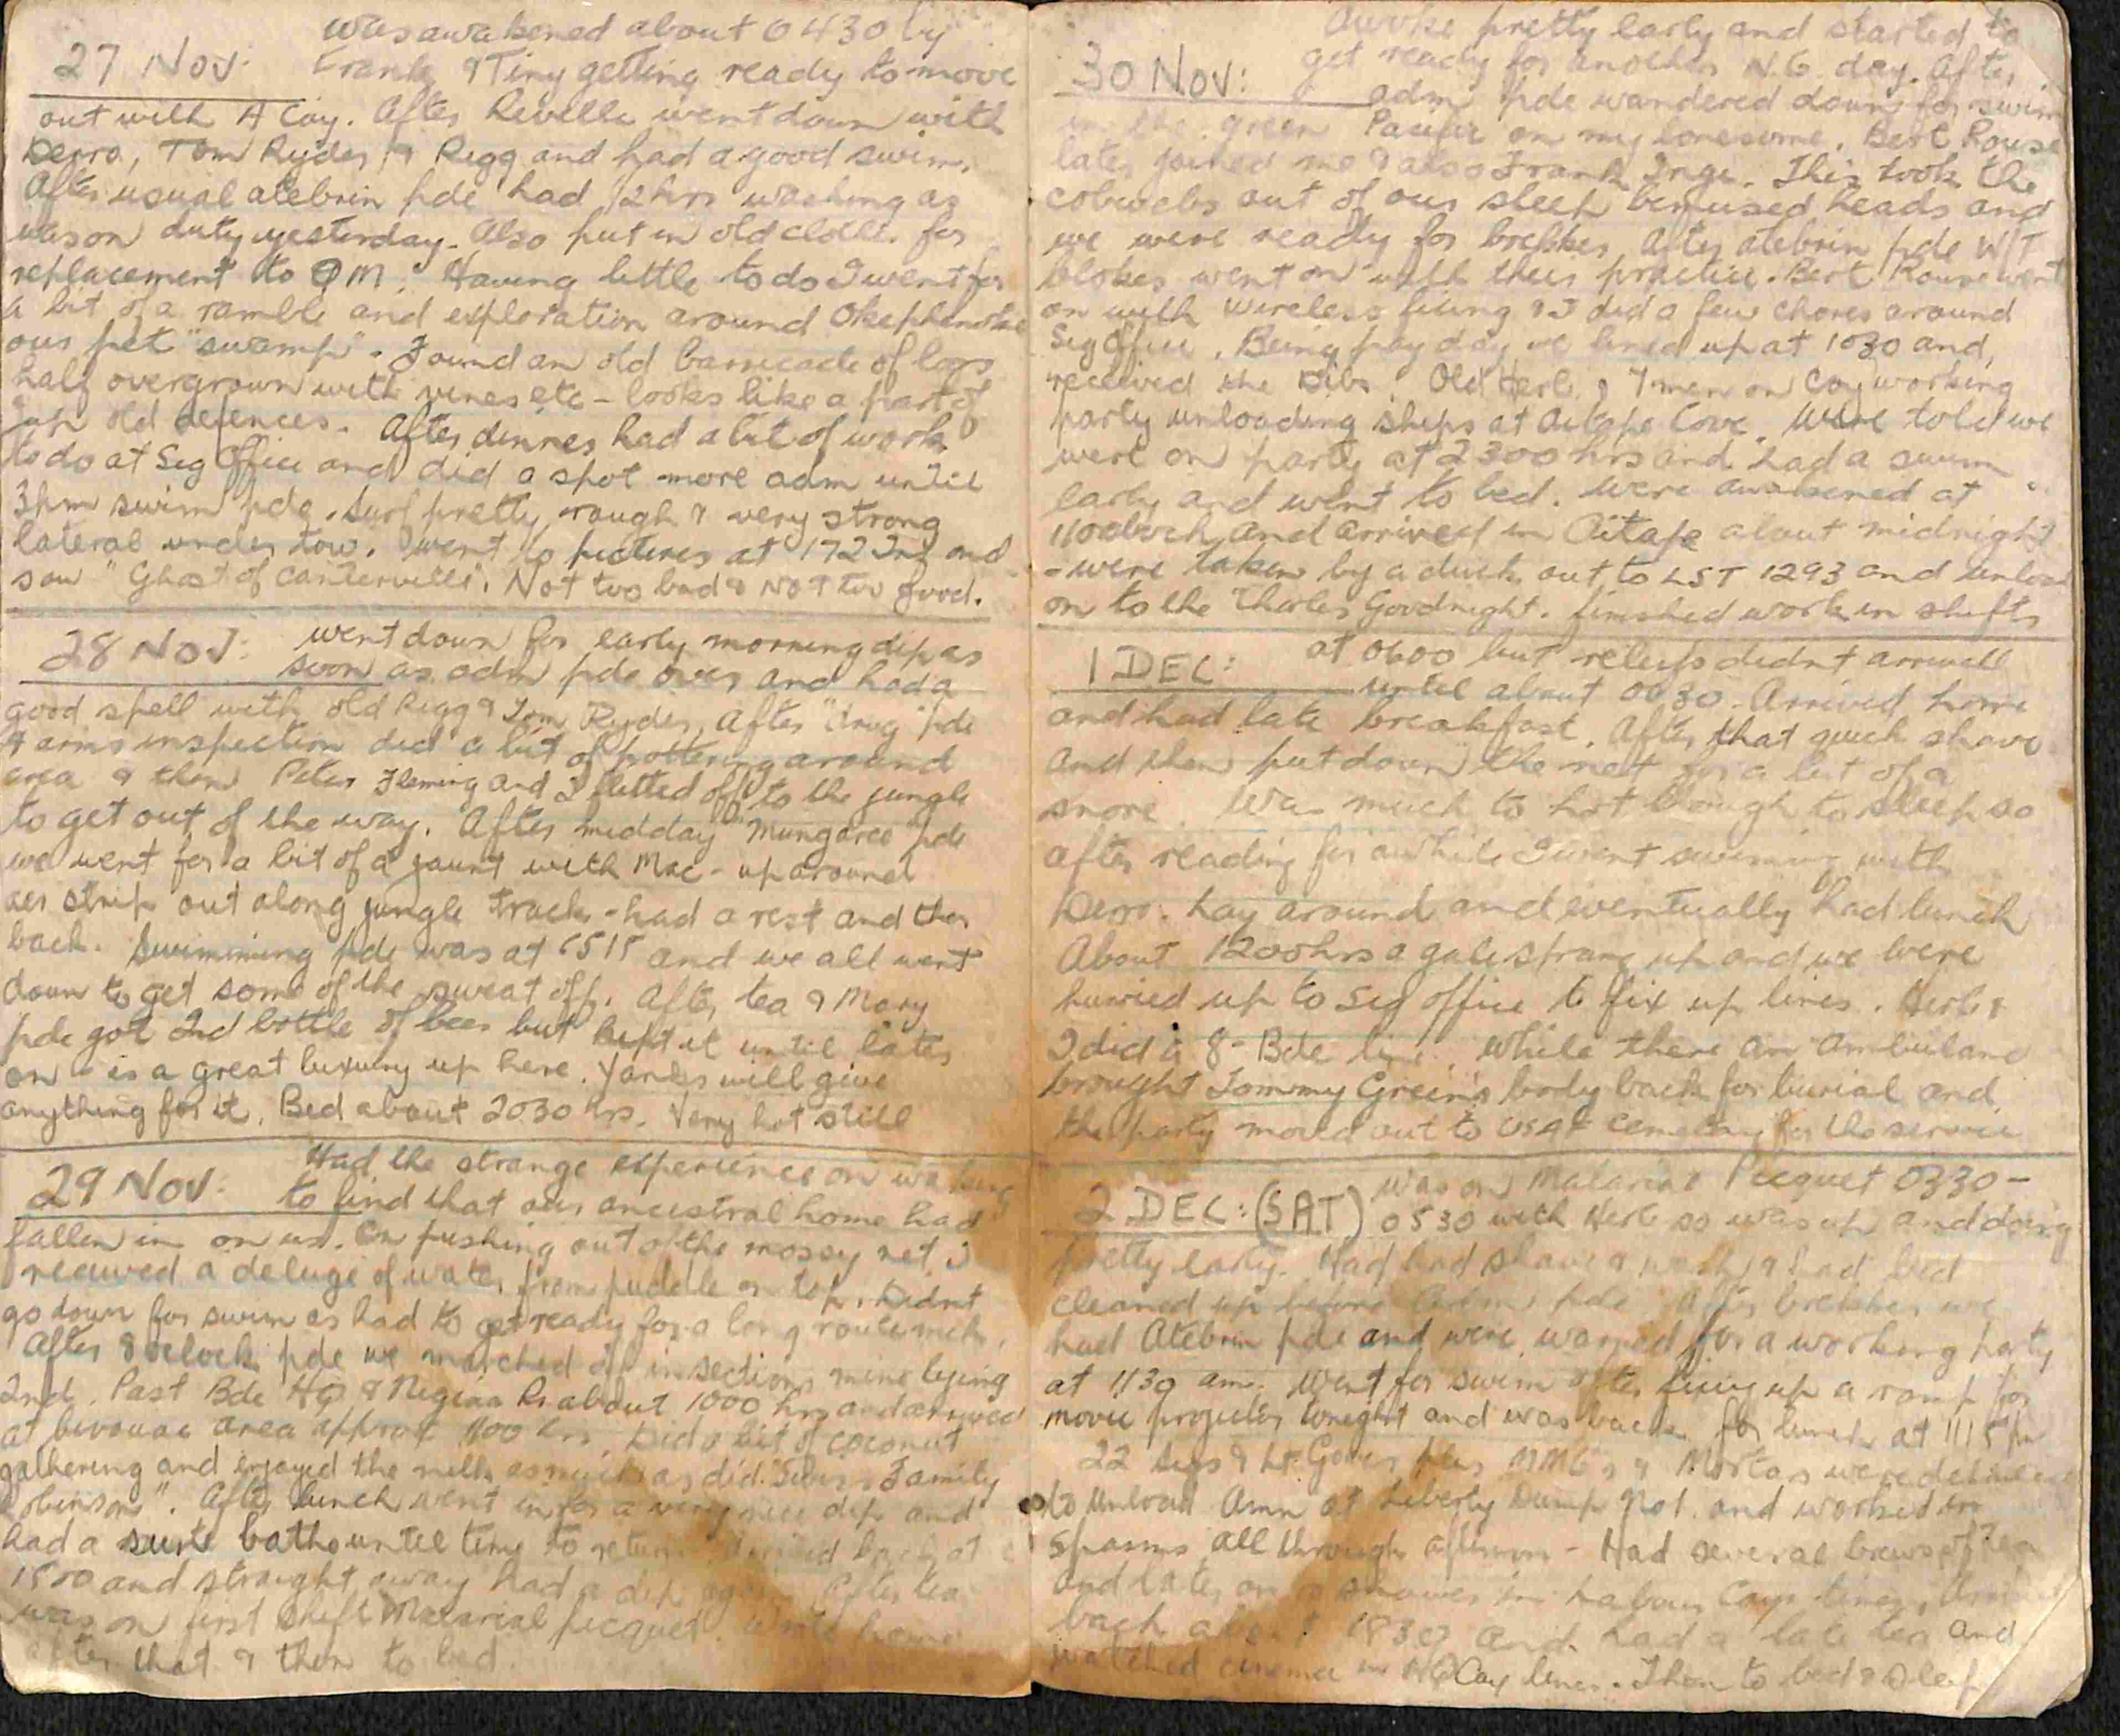 27 Nov: was awakened about 0430 by
Frank & Tiny getting ready to move
out with A Coy. After Reveille went down with
Derro, Tom Ryder, & Rigg and had a good swim.
After usual atebrin pde had 1/2 hrs washing as
was on duty yesterday. Also put in old clothes for
replacement to QM. Having little to do I went for
a bit of a ramble and exploration around Okephenokee
our pet "swamp". Found an old barricade of logs
half overgrown with vines etc - looks like a part of
Jap old defences. After dinner had a bit of work
to do at Sig Office and did a spot more adm until
3pm swim pde. Surf pretty rough & very strong
lateral under tow. Went to pictures at 172 and
saw "Ghost of Canterville". Not too bad & NOT too good.
28 Nov: went down for early morning dip as
soon as adm pde over and had a
good spell with old Rigg & Tom Ryder. After "drug" pde
& arms inspection did a bit of pottering around
area & then Peter Fleming and I flitted off to the jungle
to get out of the way. After midday "Mungaree" pde
we went for a bit of a jaunt with Mac - up around
air strip out along jungle track - had a rest and then
back. Swimming pde was at 1515 and we all went
down to get some of the sweat off. After tea & Mary
pde got 2nd bottle of beer but kept it until later
on - is a great luxury up here. Yanks will give
anything for it. Bed about 2030 hrs. Very hot still
29 Nov: Had the strange experience on waking
to find that our ancestral home had
fallen in on us. On pushing out of the mossy net I
received a deluge of water from puddle on top. Didnt
go down for swim as had to get ready for a long route mch.
After 8 oclock pde we marched off in sections mine being
2nd. Past Bde HQ & Nigia R about 1000 hrs and arrived
at bivouac area approx 1100 hrs. Did a bit of coconut
gathering and enjoyed the milk as much as did "Swiss Family
Robinson". After lunch went in for a very nice dip and
had a sun bathe until time to return. Arrived back at
1500 and straight away had a dip again. After tea
was on first shift Malarial picquet. Wrote home
after that & then to bed.
30 Nov: Awoke pretty early and started to
get ready for another N.G. day. After
adm pde wandered down for swim
in the green Pacific on my lonesome. Bert Rouse
later joined me & also Frank Inge. This took the
cobwebs out of our sleep bemused heads and
we were ready for brekker. After atebrin pde W/T
blokes went on with their practice. Bert Rouse went
on with Wireless & I did a few chores around
Sig Office. Being pay day we lined up at 1030 and
received the Dibs. Old Herb & 7 men on Coy working
party unloading ships at Aitape Cove. Were told we
were on party at 2300 hrs and had a swim
early and went to bed. Were awakened at
11 oclock and arrived in Aitape about midnight
- were taken by a duck out to LST 1293 and unload
on to the Charles Goodnight. Finished work in shifts
1 DEC: at 0600 but reliefs didnt arrive
until about 0630. Arrived home
and had late breakfast. After that quick shave
and then put down the net for a bit of a
snore. Was much to hot though to sleep so
after reading for awhile I went swimming with
Derro. Lay around and eventually had lunch
About 1200 hrs a gale sprang up and we were
hurried up to Sig office to fix up lines. Herb &
I did 8 Bde line. While there an ambulance
brought Tommy Green's body back for burial and
the party moved out to cemetery for the service
2 DEC: (SAT) was on Malarial Picquet 0330 -
0530 with Herb so was up and doing
pretty early. Had had shave & wash & had bed
cleaned up before adm pde. After brekker we
had Atebrin pde and were warned for a working party
at 1130 am. Went for swim after fixing up a ramp for
movie projector tonight and was back for lunch at 1115
22 Sigs & Lt plus MMGs & Mortars were detailed
to unload Amn at Liberty Dump No 1. and worked in
spasms all through afternoon - Had several brews of tea
and later on a shower in Labour Coy lines. Arrived
back about 1830 and had a late tea and
watched cinema in HQ Coy lines. Then to bed & Sleep